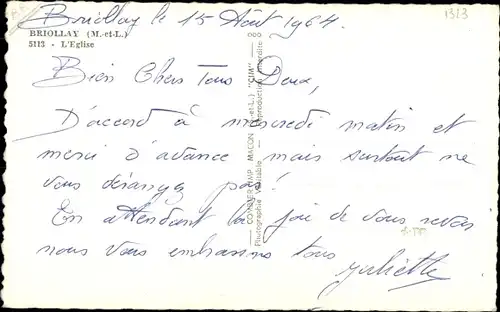 Briollay le 15 Août 1964.
1313
BRIOLLAY (M.-et-L.)
5113 - L'Eglise
Bien Chers Tous Deux,
D'accord à mercredi matin et
merci d'avance mais surtout ne
vous dérangez pas!
En attendant la joie de vous revoir
nous vous embrassons tous
Juliette
COMBIER IMP. MACON (S.-et-L.) "CIM"
Photographie Véritable - Reproduction interdite